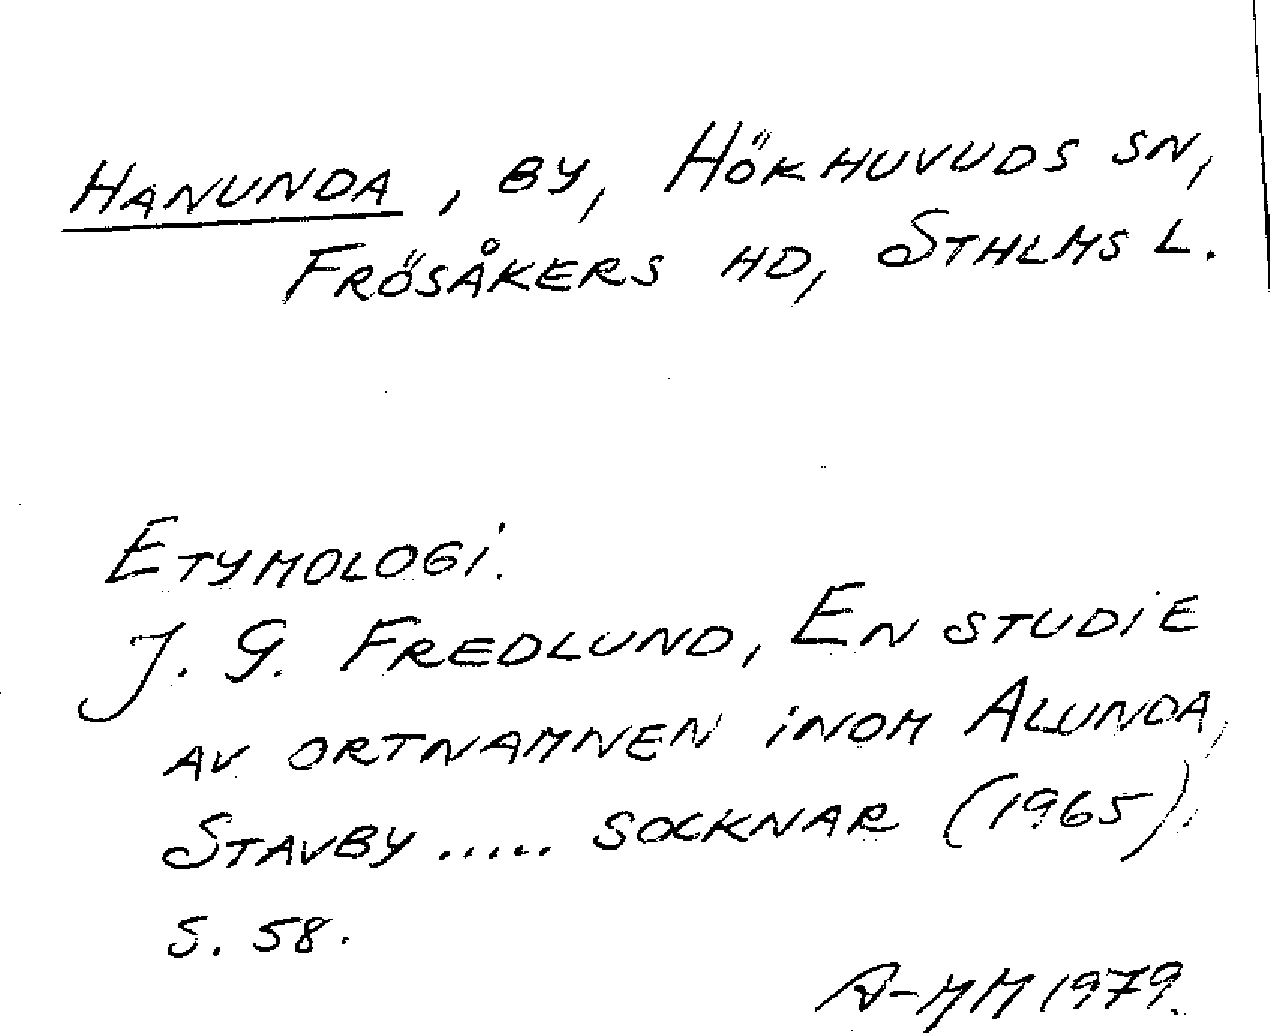 HANUNDA, BY, HÖKHUVUDS SN,
FRÖSÅKERS HD, STHLMS L.
ETYMOLOGI.
J. G. FREDLUND, EN STUDIE
AV ORTNAMNEN INOM ALUNDA,
STAVBY ..... SOCKNAR (1965).
S. 58.
A-MM 1979.